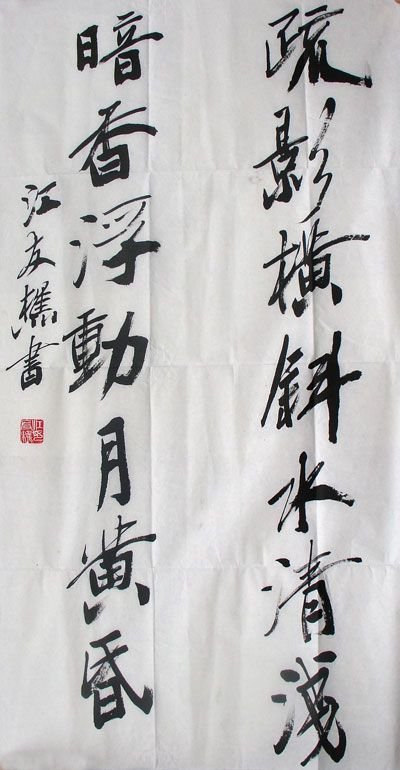 疏影橫斜水清浅
暗香浮動月黄昏
江友樵書